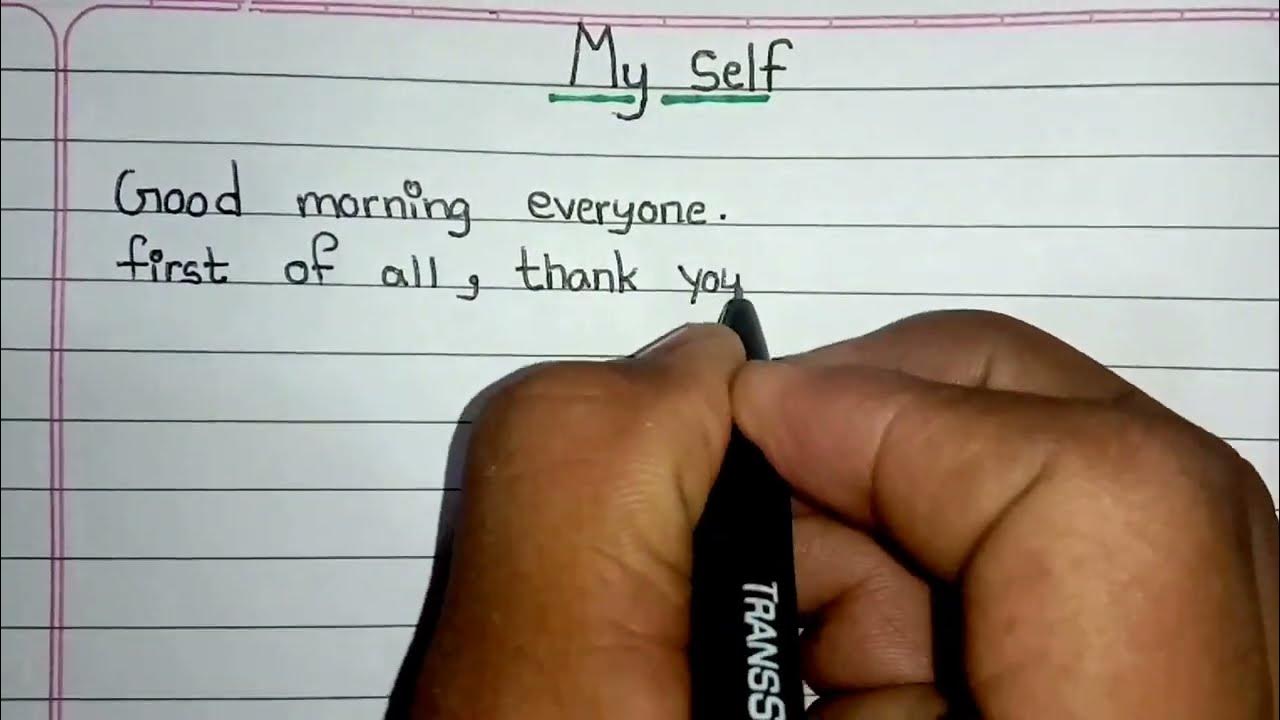 My Self
Good morning everyone.
first of all, thank you
TRANSS